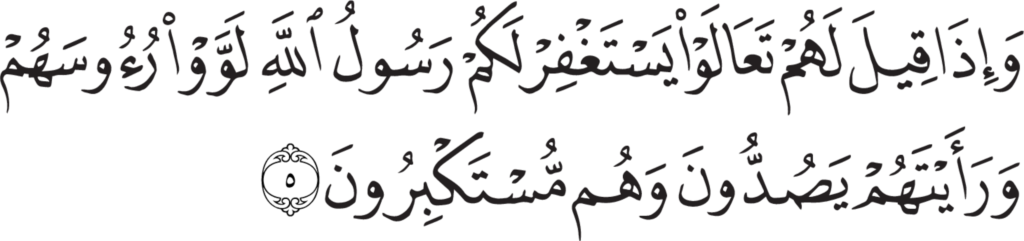 وَإِذَا قِيلَ لَهُمْ تَعَالَوْا۟ يَسْتَغْفِرْ لَكُمْ رَسُولُ ٱللَّهِ لَوَّوْا۟ رُءُوسَهُمْ
وَرَأَيْتَهُمْ يَصُدُّونَ وَهُم مُّسْتَكْبِرُونَ ٥